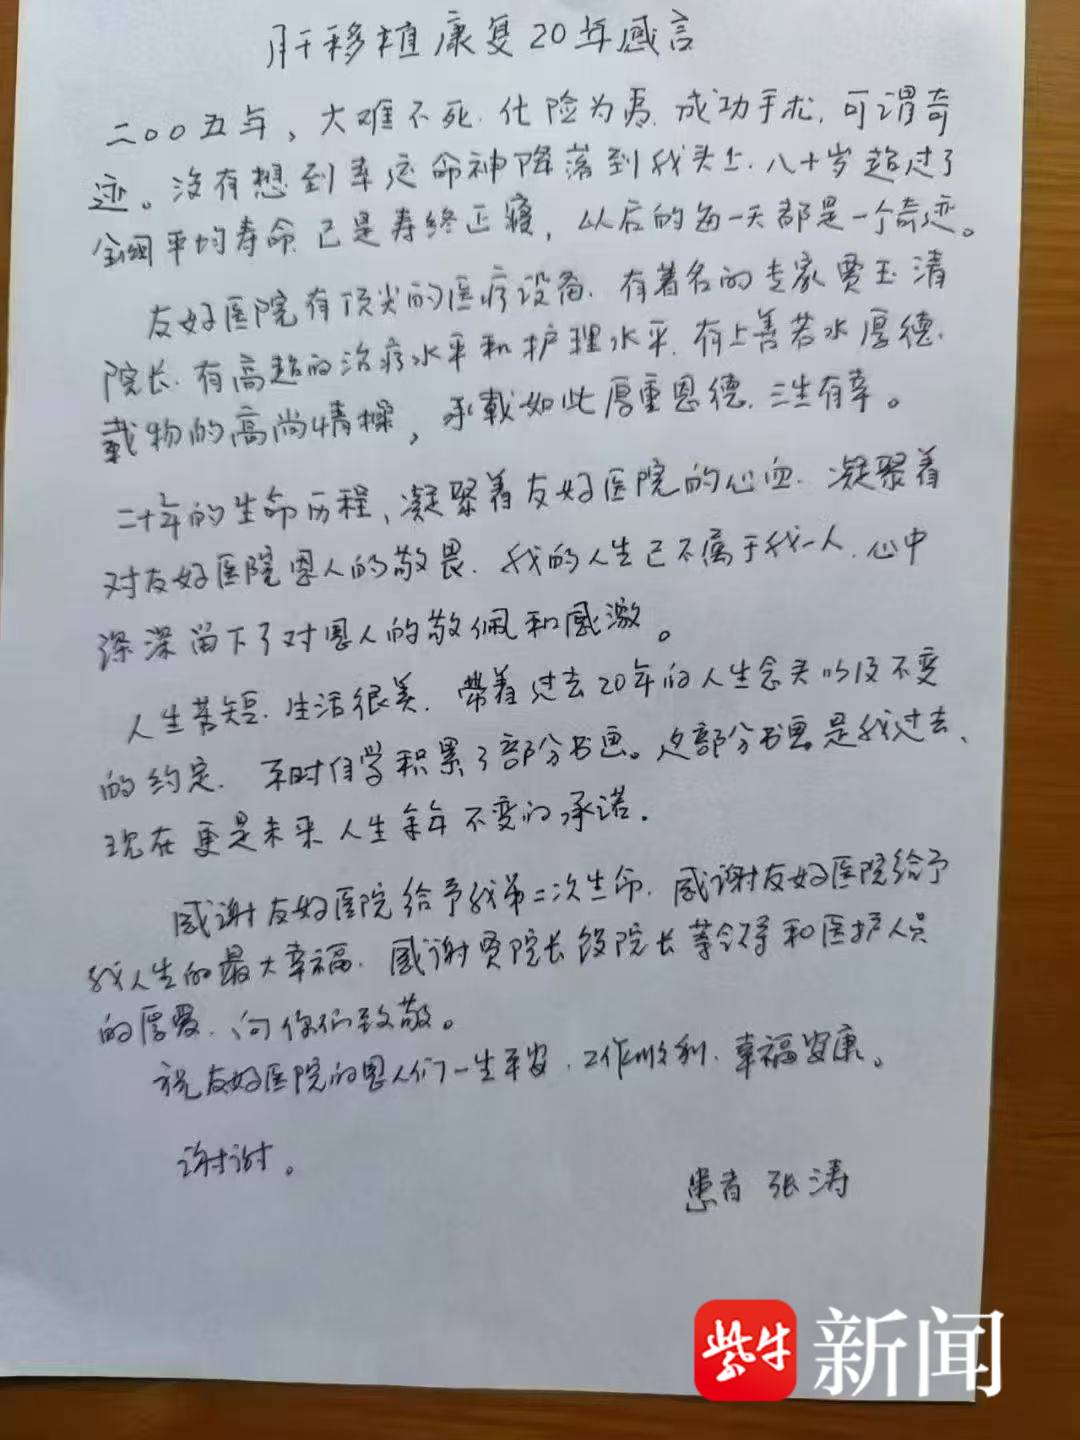 肝移植康复20年感言
二00五年，大难不死.化险为夷.成功手术,可谓奇
迹。没有想到幸运命神降落到我头上.八十岁超过了
全国平均寿命.已是寿终正寝，以后的每一天都是一个奇迹。
友好医院有顶尖的医疗设备.有著名的专家贾玉清
院长.有高超的治疗水平和护理水平.有上善若水厚德.
载物的高尚情操，承载如此厚重恩德.三生有幸。
二十年的生命历程,凝聚着友好医院的心血.凝聚着
对友好医院恩人的敬畏.我的人生已不属于我一人.心中
深深留下了对恩人的敬佩和感激。
人生苦短.生活很美.带着过去20年的人生念头以及不变
的约定.平时自学积累了部分书画。这部分书画是我过去、
现在更是未来人生余年不变的承诺.
感谢友好医院给予我第二次生命.感谢友好医院给予
我人生的最大幸福.感谢贾院长 院长等领导和医护人员
的厚爱.向你们致敬。
祝友好医院的恩人们一生平安.工作顺利.幸福安康。
谢谢。
患者 张涛
紫牛新闻